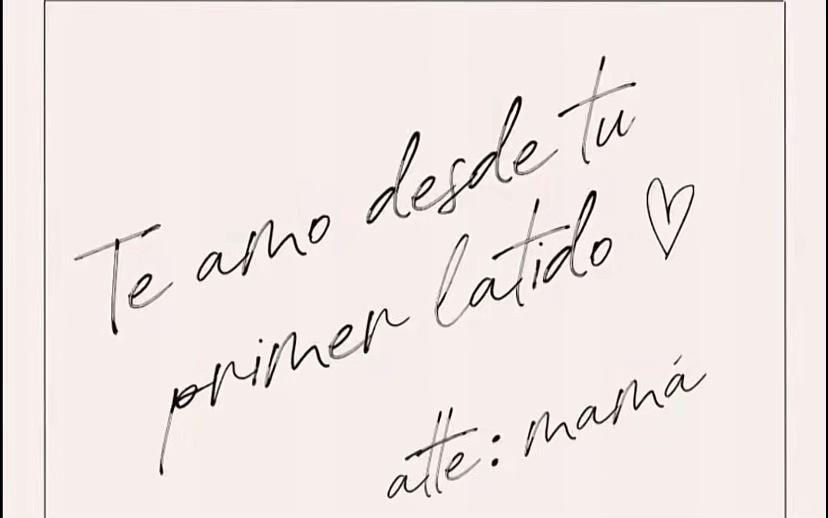 Te amo desde tu
primer latido ♡
atte: mamá